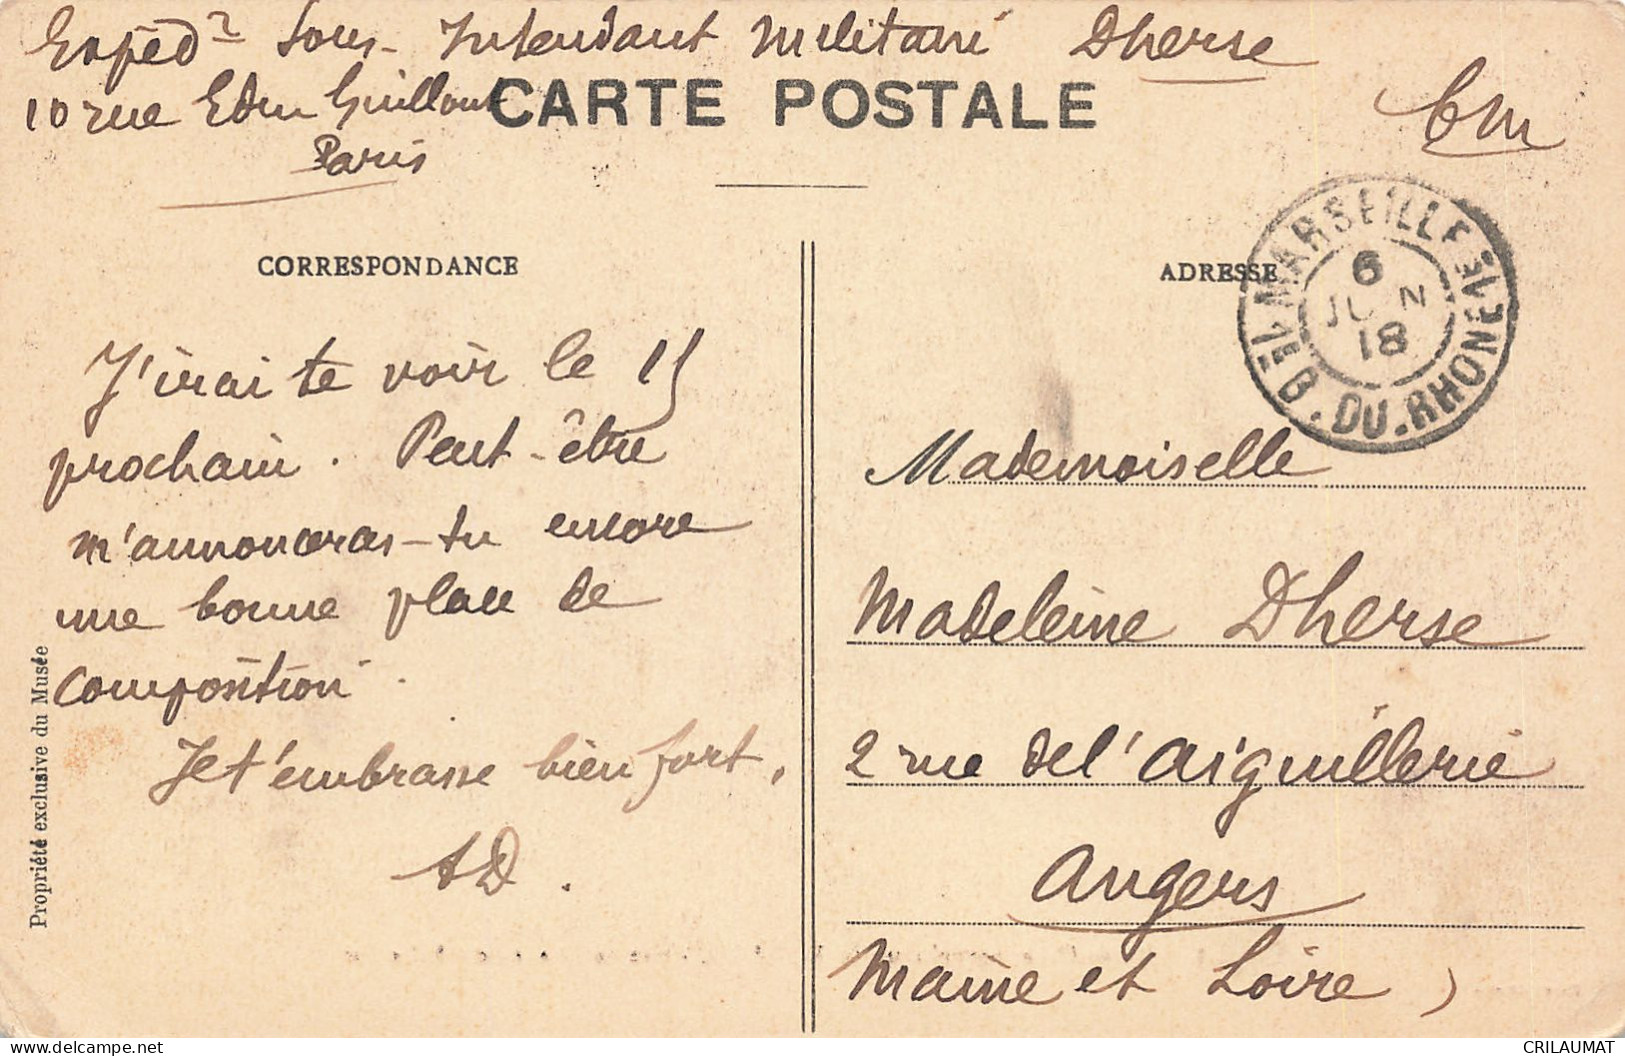 Expéd r Sous-Intendant Militaire Dherse
10 rue Edm Guillout
Paris
CARTE POSTALE
FM
CORRESPONDANCE
ADRESSE
MARSEILLE
6
JUIN
18
B. DU. RHONE
J'irai te voir le 15
prochain. Peut-être
m'annonceras-tu encore
une bonne place de
composition.
Je t'embrasse bien fort,
AD.
Mademoiselle
Madeleine Dherse
2 rue de l'aiguillerie
Angers
Maine et Loire)
Propriété exclusive du Musée
CRILAUMAT